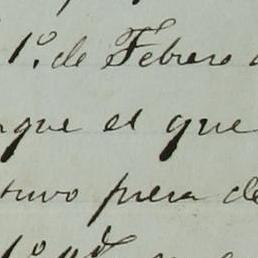 1º. de Febrero
que el que
tuvo fuera de
1º